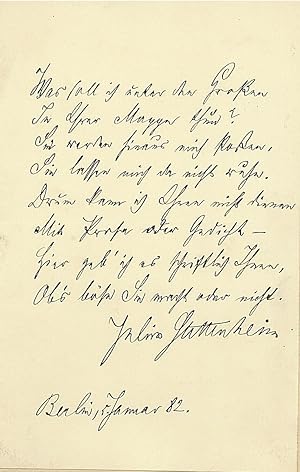 Was soll ich unter den Großen
In Ihrer Mappe thun?
Sie werden hinaus mich stoßen,
Sie lassen mich da nicht ruhn.
Drum kann ich Ihnen nicht dienen
Mit Prosa oder Gedicht –
Hier geb' ich es schriftlich Ihnen,
Ob's böse Sie macht oder nicht.
Julius Stettenheim
Berlin, 5 Januar 82.